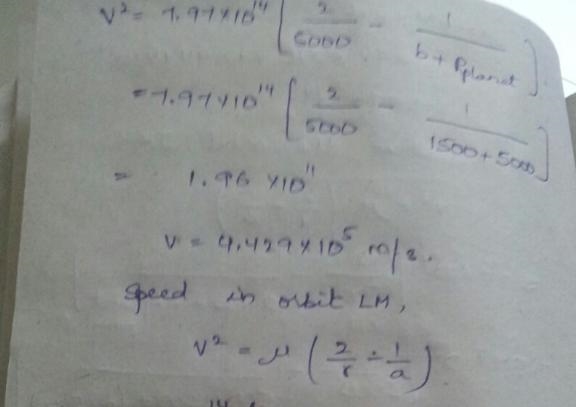 V² = 7.97×10¹⁴ [ 2/5000 - 1/(b + Pplanet) ].
= 7.97×10¹⁴ [ 2/5000 - 1/(1500+5000) ]
= 1.96 ×10¹¹
V = 4.429×10⁵ m/s.
Speed in orbit LM,
V² = μ ( 2/r - 1/a )